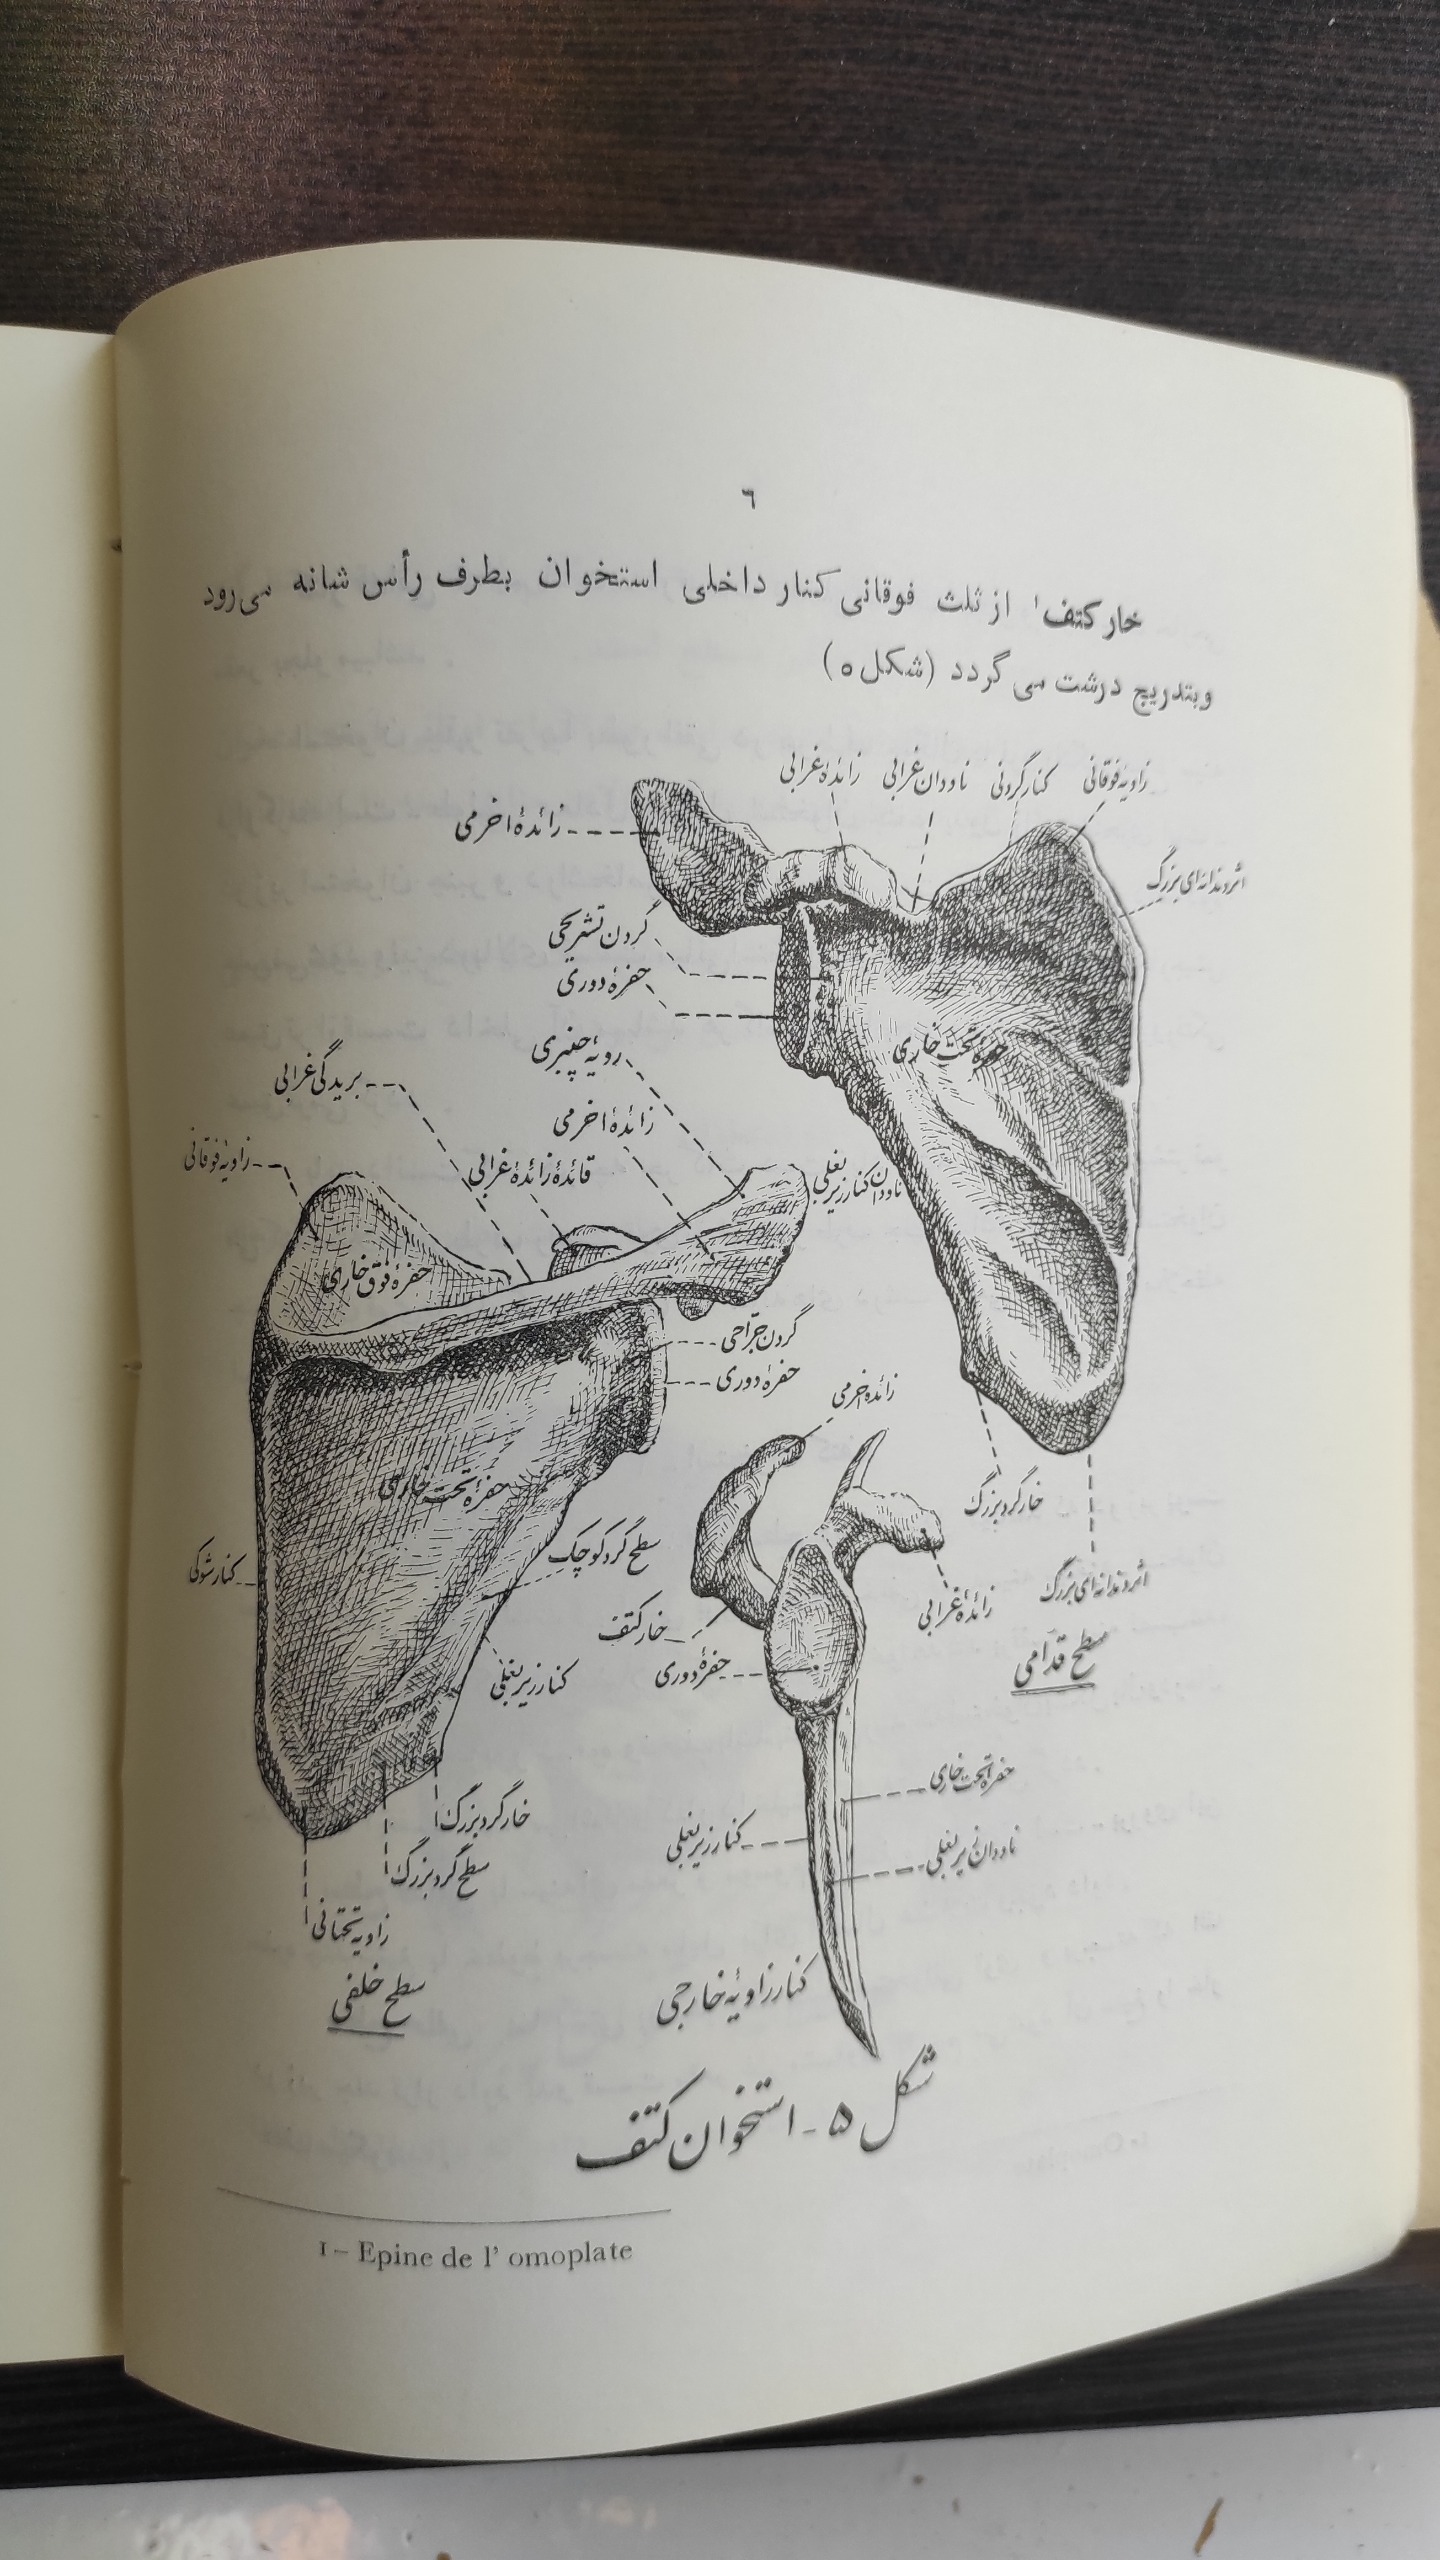 ٦
خار کتف¹ از ثلث فوقانی کنار داخلی استخوان بطرف رأس شانه می‌رود
وبتدریج درشت می گردد (شکل ۵)
زاویهٔ فوقانی
کنار گردنی
ناودان غرابی
زائدهٔ غرابی
زائدهٔ اخرمی
اثر دندانه‌ای بزرگ
گردن تشریحی
حفرهٔ دوری
حفرهٔ تحت خاری
رویهٔ چنبری
بریدگی غرابی
زائدهٔ اخرمی
قائدهٔ زائدهٔ غرابی
زاویهٔ فوقانی
ناودان کنار زیر بغلی
حفرهٔ فوق خاری
گردن جراحی
حفرهٔ دوری
زائدهٔ اخرمی
حفرهٔ تحت خاری
خار گرد بزرگ
سطح گرد کوچک
کنار شوکی
اثر دندانه‌ای بزرگ
زائدهٔ غرابی
خار کتف
سطح قدامی
حفرهٔ دوری
کنار زیر بغلی
حفرهٔ تحت خاری
خار گرد بزرگ
کنار زیر بغلی
ناودان زیر بغلی
سطح گرد بزرگ
زاویه تحتانی
سطح خلفی
کنار زاویهٔ خارجی
شکل ۵ - استخوان کتف
1 – Epine de l’ omoplate